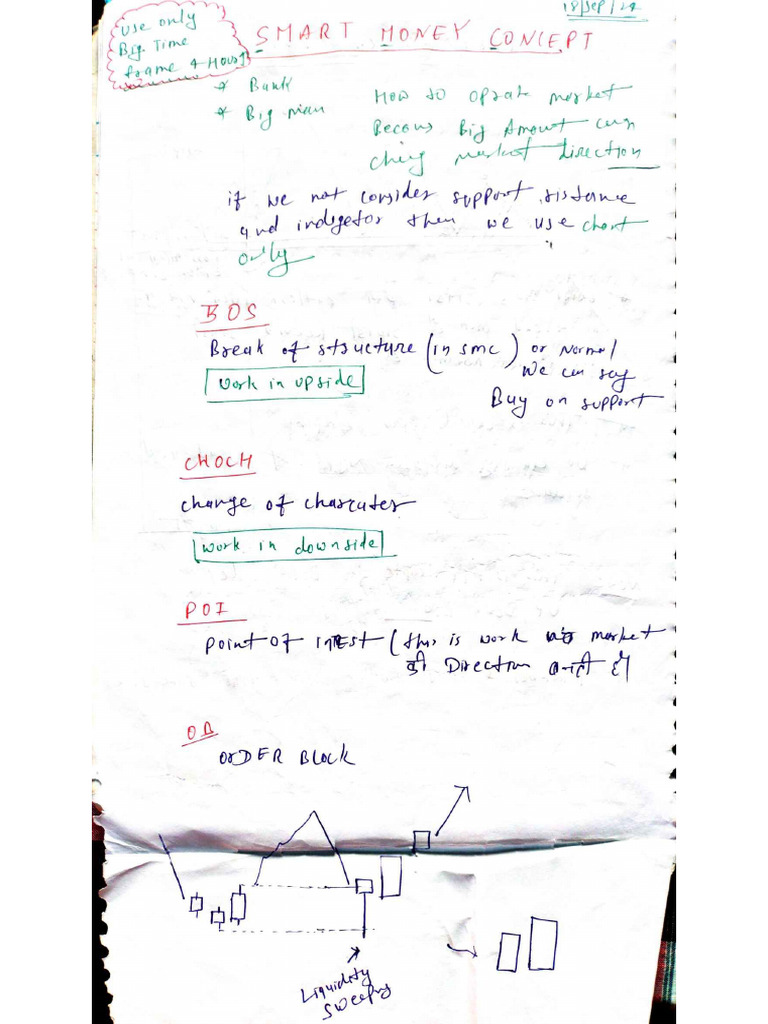 Use only
Big Time
frame 4 Hours
18/Sep/24
SMART MONEY CONCEPT
* Bank
* Big man
How to oprate market
Becous Big Amount can
ching market direction
if we not consider support, sistance
and indigetor then we use chart
only
BOS
Break of structure (in smc) or Normal
we can say
Buy on support
Work in upside
CHOCH
change of charcuter
work in downside
POI
Point OF INTEST (this is work market
की Direction बनाती है)
OB
OrDER BLOCK
Liquidity
sweeping